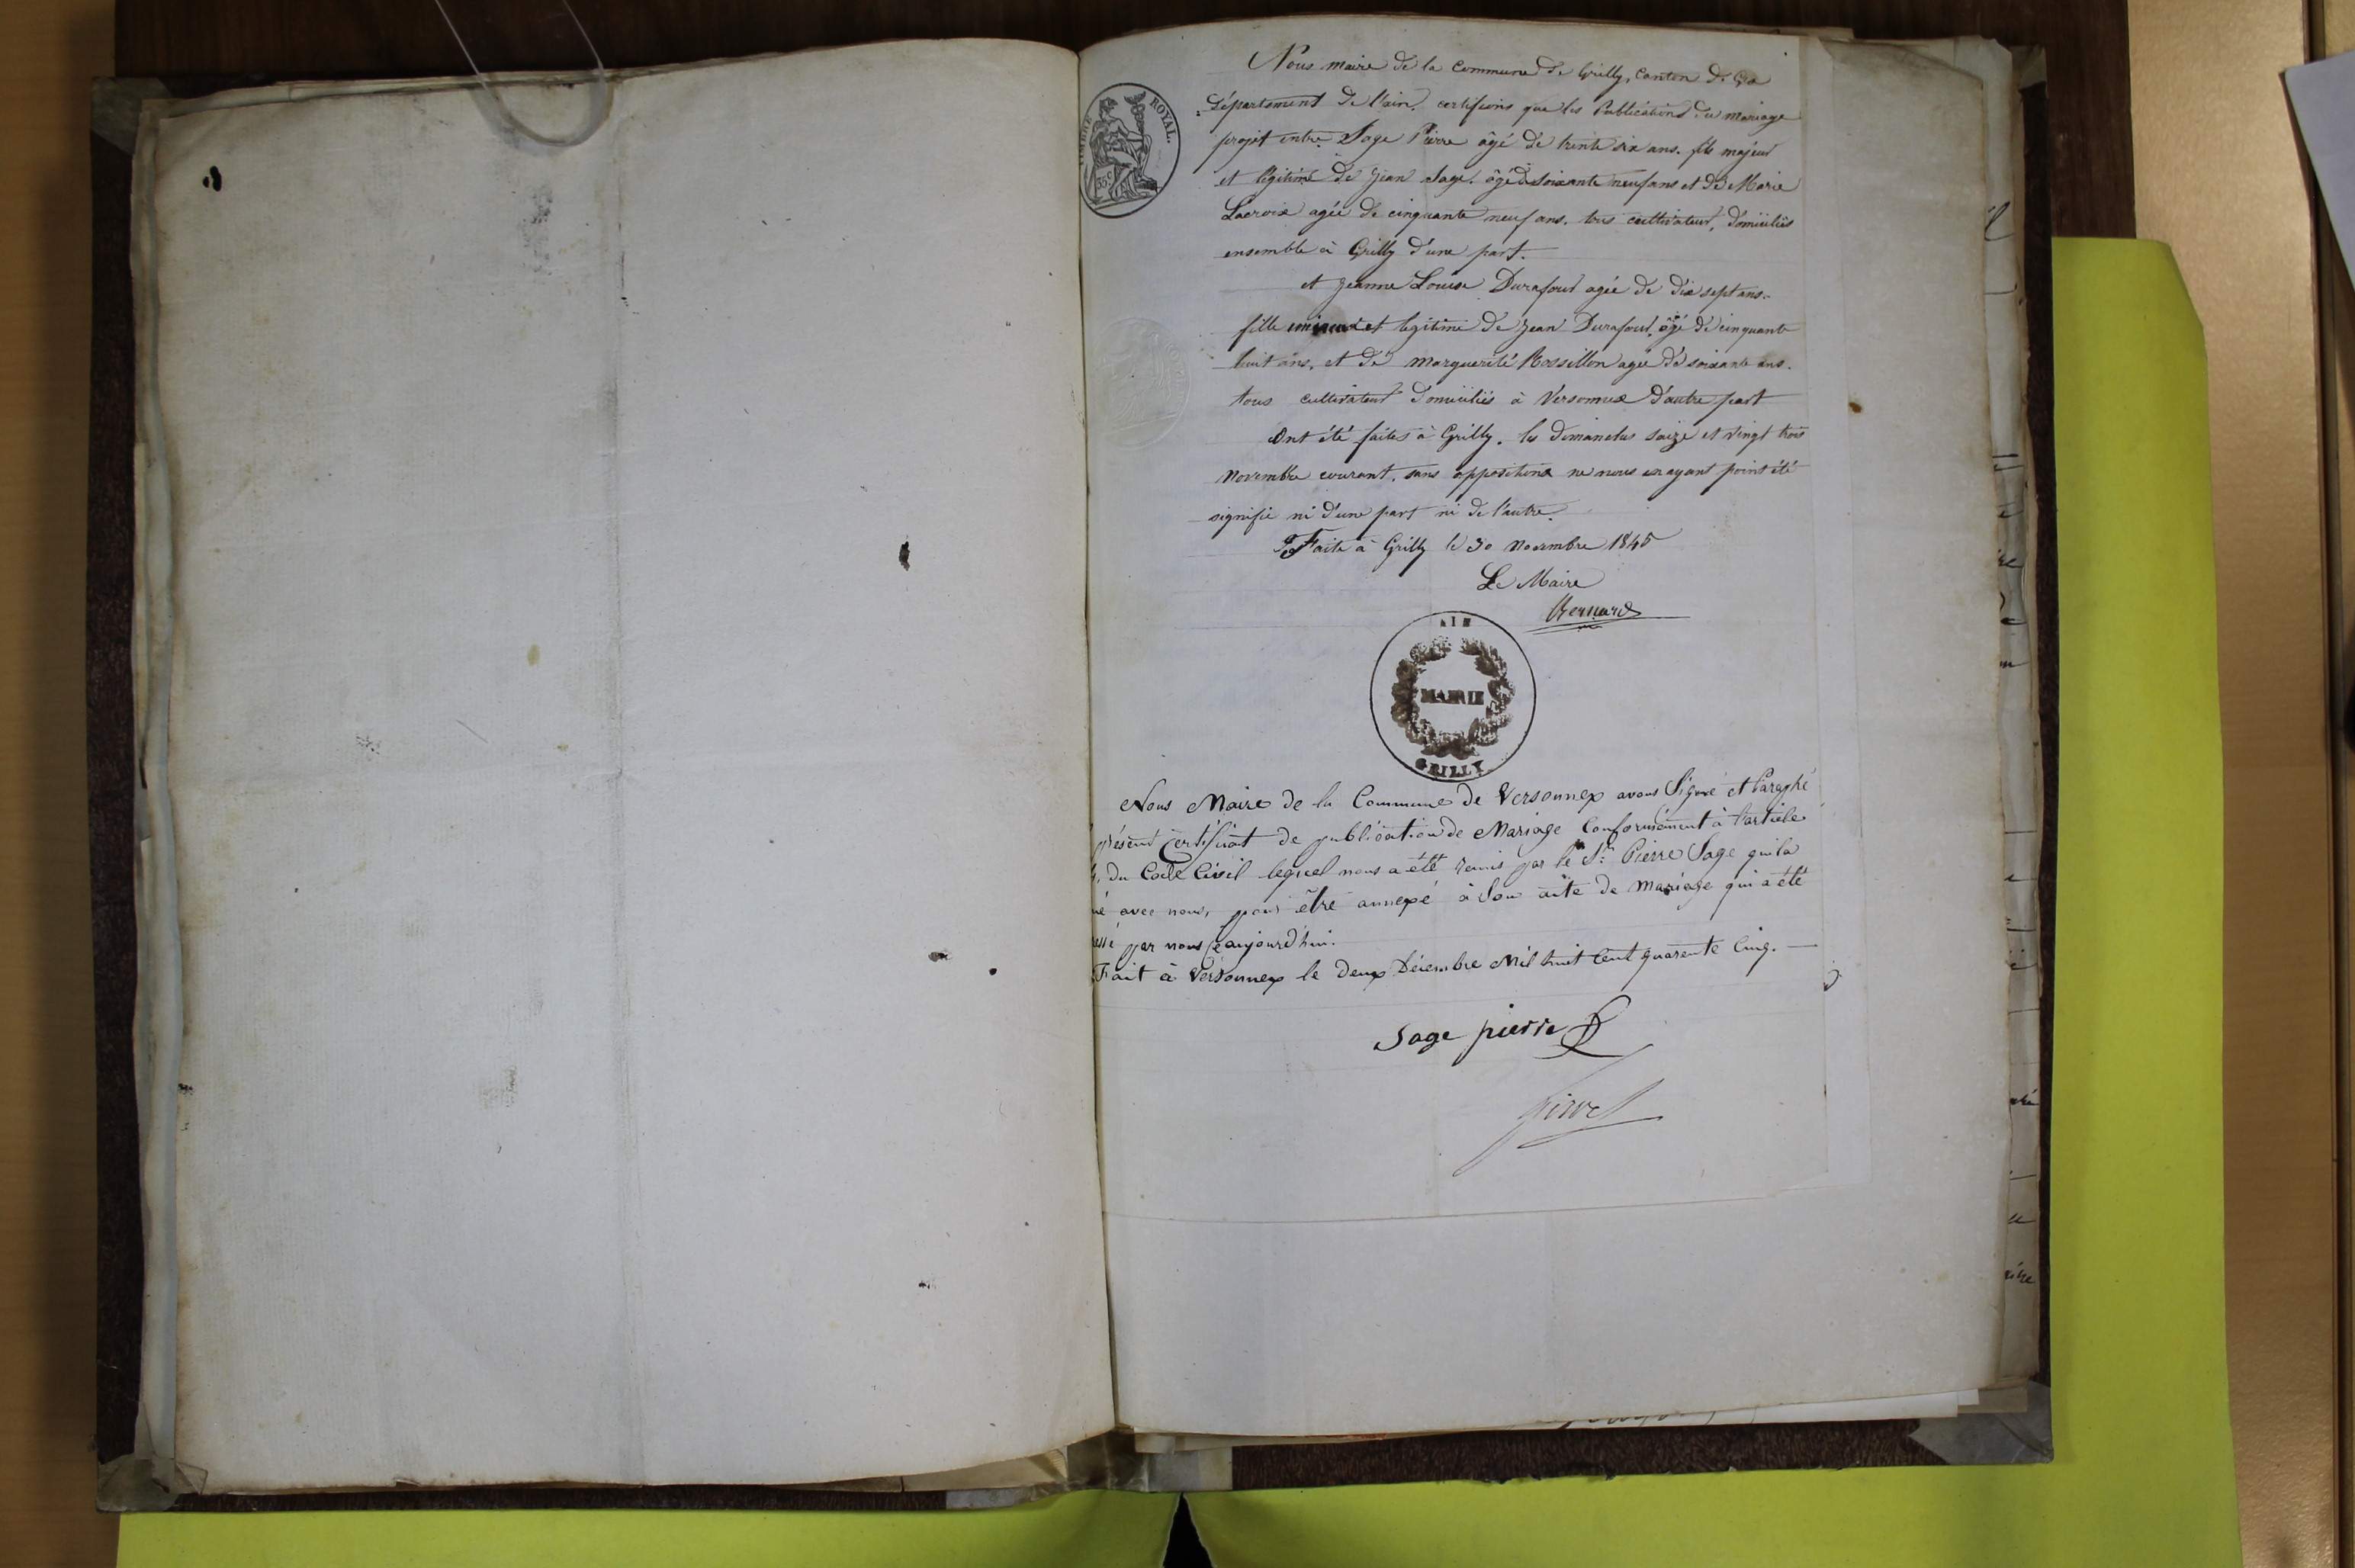 TIMBRE ROYAL.
35c
Nous maire de la Commune de Grilly, Canton de Gex
Département de l'ain, certifions que les Publications du mariage
projet entre Sage Pierre âgé de trente six ans, fils majeur
et légitime de Jean Sage, âgé de soixante neuf ans et de Marie
Lacroix agée de cinquante neuf ans, tous cultivateurs, domiciliés
ensemble à Grilly d'une part.
et Jeanne Louise Durafour agée de dix sept ans
fille mineure et légitime de Jean Durafour, âgé de cinquante
huit ans, et de Marguerite Rossillon agée de soixante ans.
tous cultivateurs domiciliés à Versonnex d'autre part
Ont été faites à Grilly, les dimanches saize et vingt trois
Novembre courant, sans oppositions ne nous en ayant point été
signifié ni d'une part ni de l'autre.
Faite à Grilly le 30 Novembre 1845
Le Maire
AIN
MAIRIE
GRILLY
Nous Maire de la Commune de Versonnex avons Signé et Paraphé
présent Certificat de publication de Mariage Conformément à l'article
du Code Civil lequel nous a été remis par le Sr. Pierre Sage qui la
né avec nous, pour être annexé à Son acte de Mariage qui a été
essé par nous cejourd'hui.
Fait à Versonnex le deux Décembre Mil huit Cent quarente Cinq. —
Sage pierre